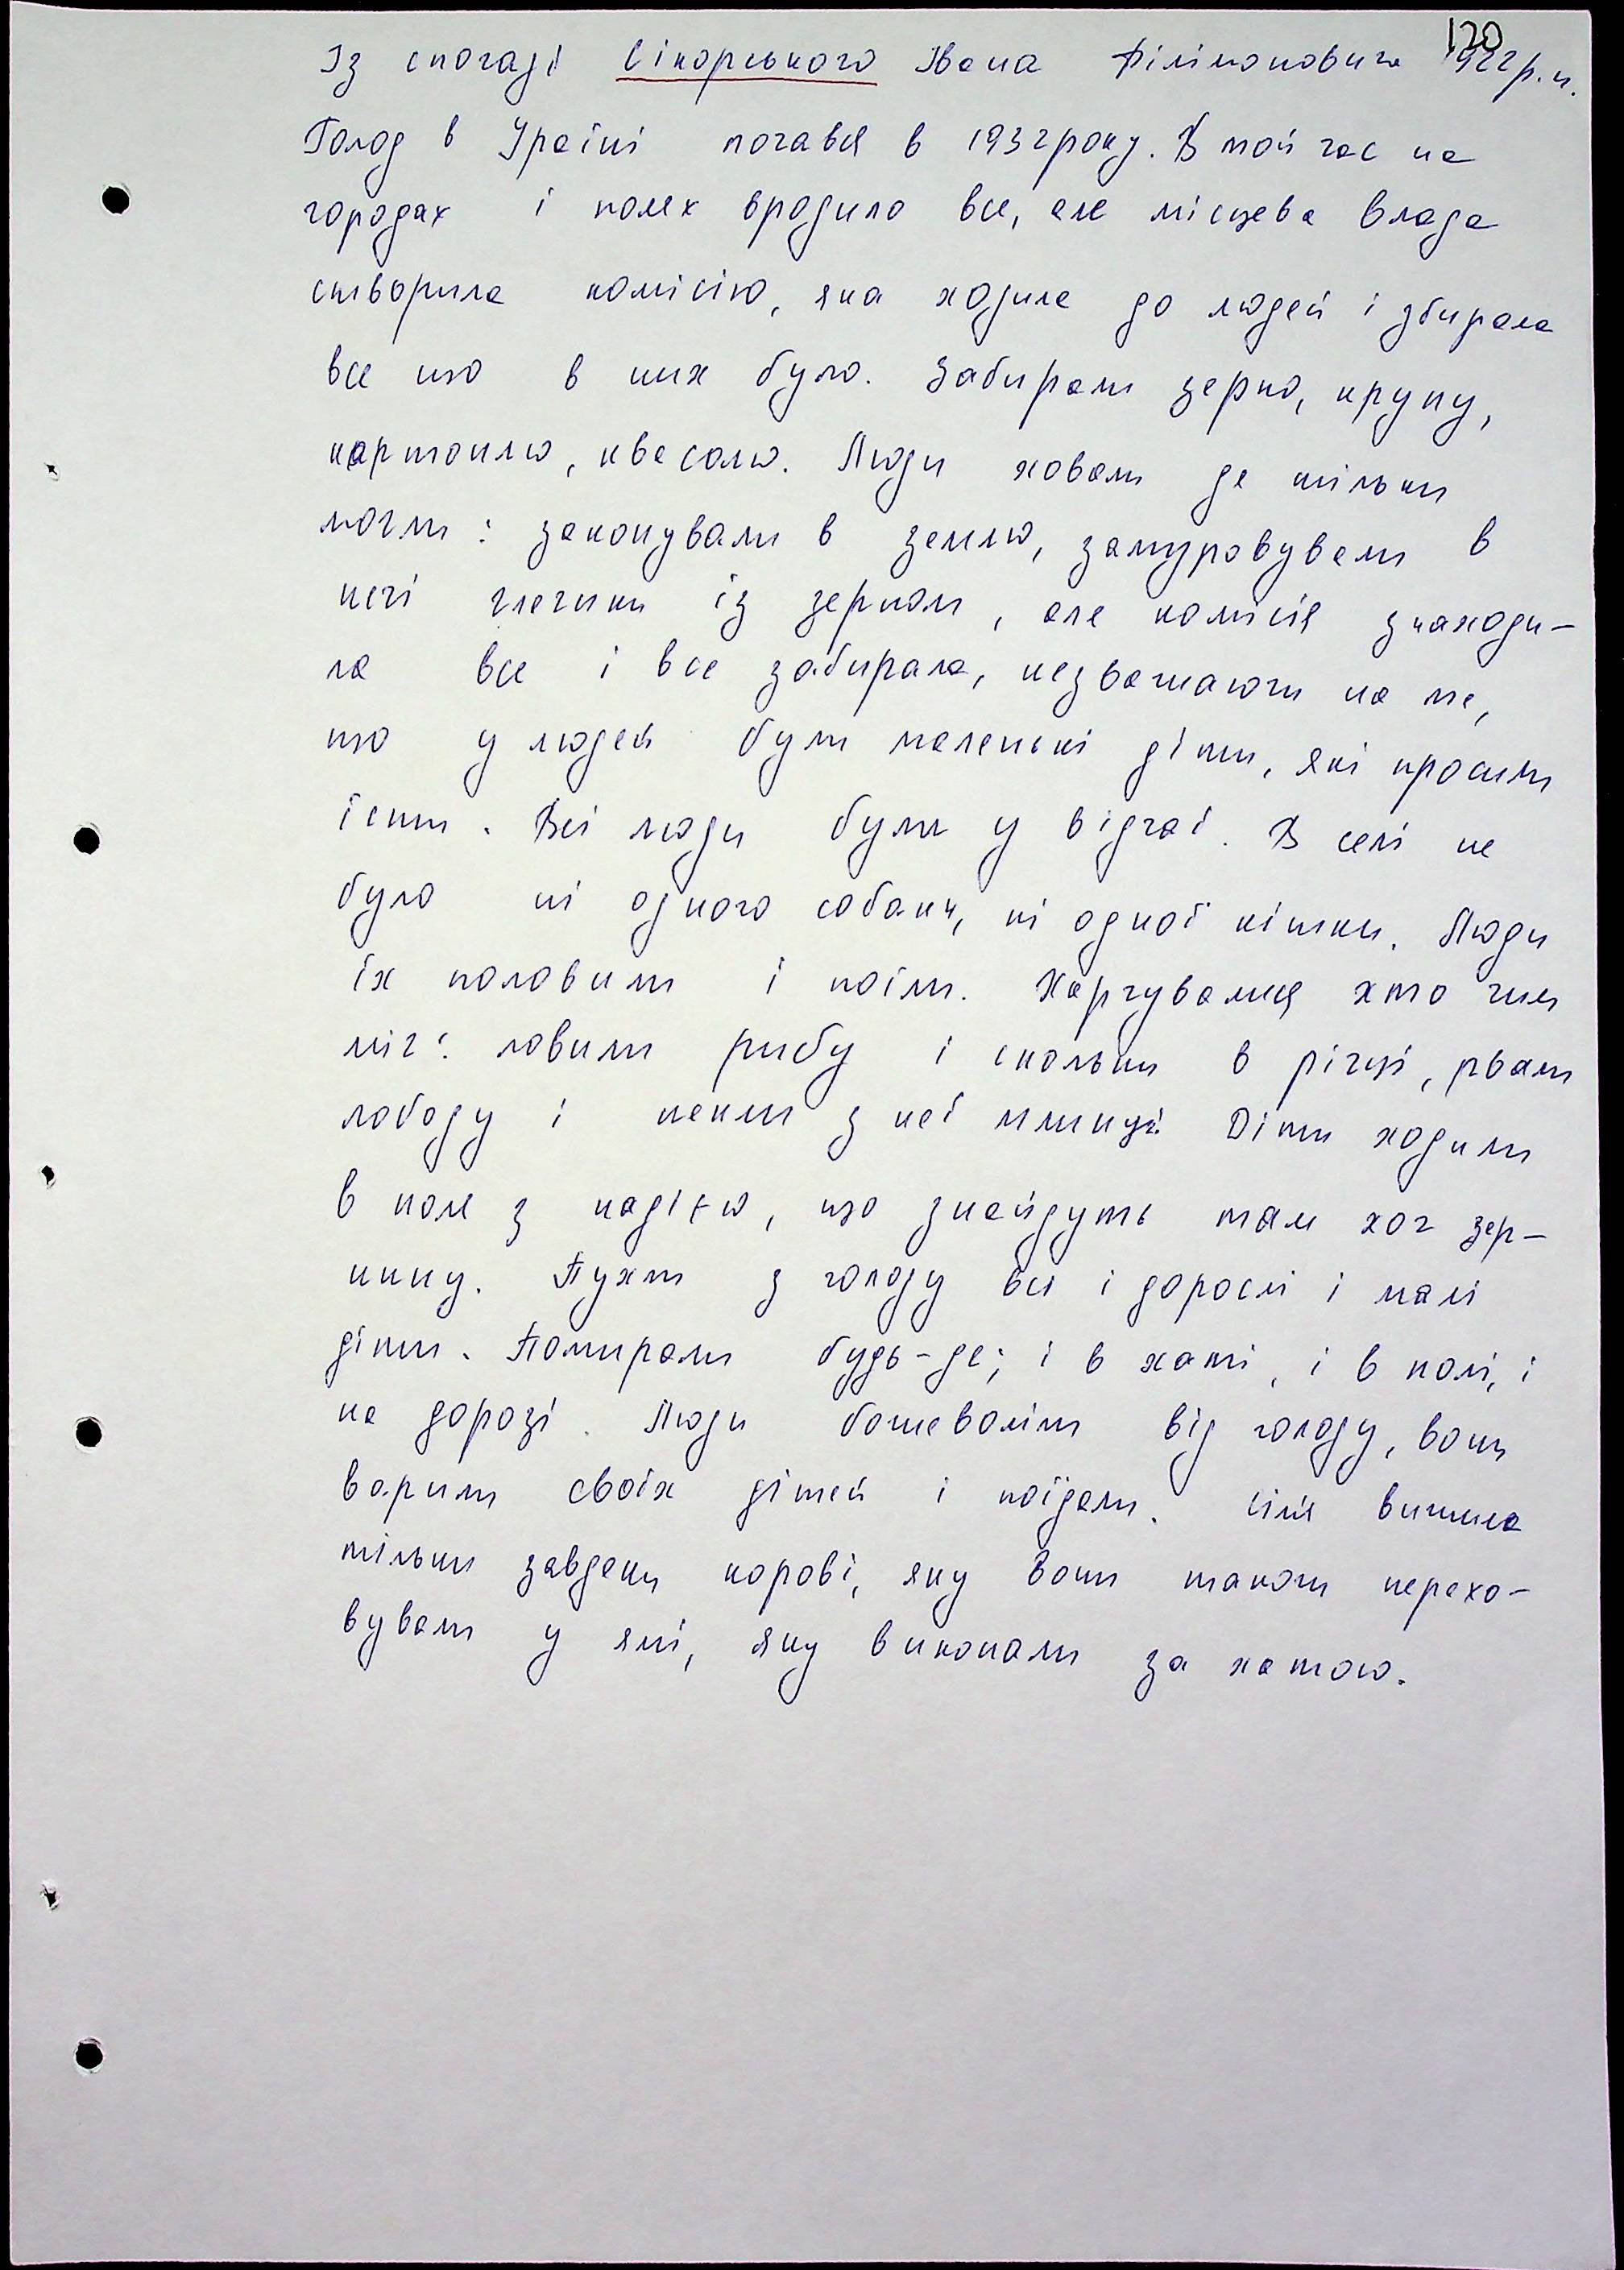 120
Із спогаді Сікорського Івана Філімоновича 1922р.н.
Голод в Україні почався в 1932року. В той час на
городах і полях вродило все, але місцева влада
створила комісію, яка ходила до людей і збирала
все що в них було. Забирали зерно, крупу,
картоплю, квасолю. Люди ховали де тільки
могли: закопували в землю, замуровували в
печі глечики із зерном, але комісія знаходи-
ла все і все забирала, незважаючи на те,
що у людей були маленькі діти, які просили
їсти. Всі люди були у відчаї. В селі не
було ні одного собаки, ні одної кішки. Люди
їх половили і поїли. Харчувалися хто чим
міг: ловили рибу і скольки в річці, рвали
лободу і пекли з неї млинці. Діти ходили
в поле з надією, що знайдуть там хоч зер-
нину. Пухли з голоду всі і дорослі і малі
діти. Помирали будь-де; і в хаті, і в полі, і
на дорозі. Люди божеволіли від голоду, вони
варили своїх дітей і поїдали. Сім'я вижила
тільки завдяки корові, яку вони також перехо-
вували у ямі, яку викопали за хатою.